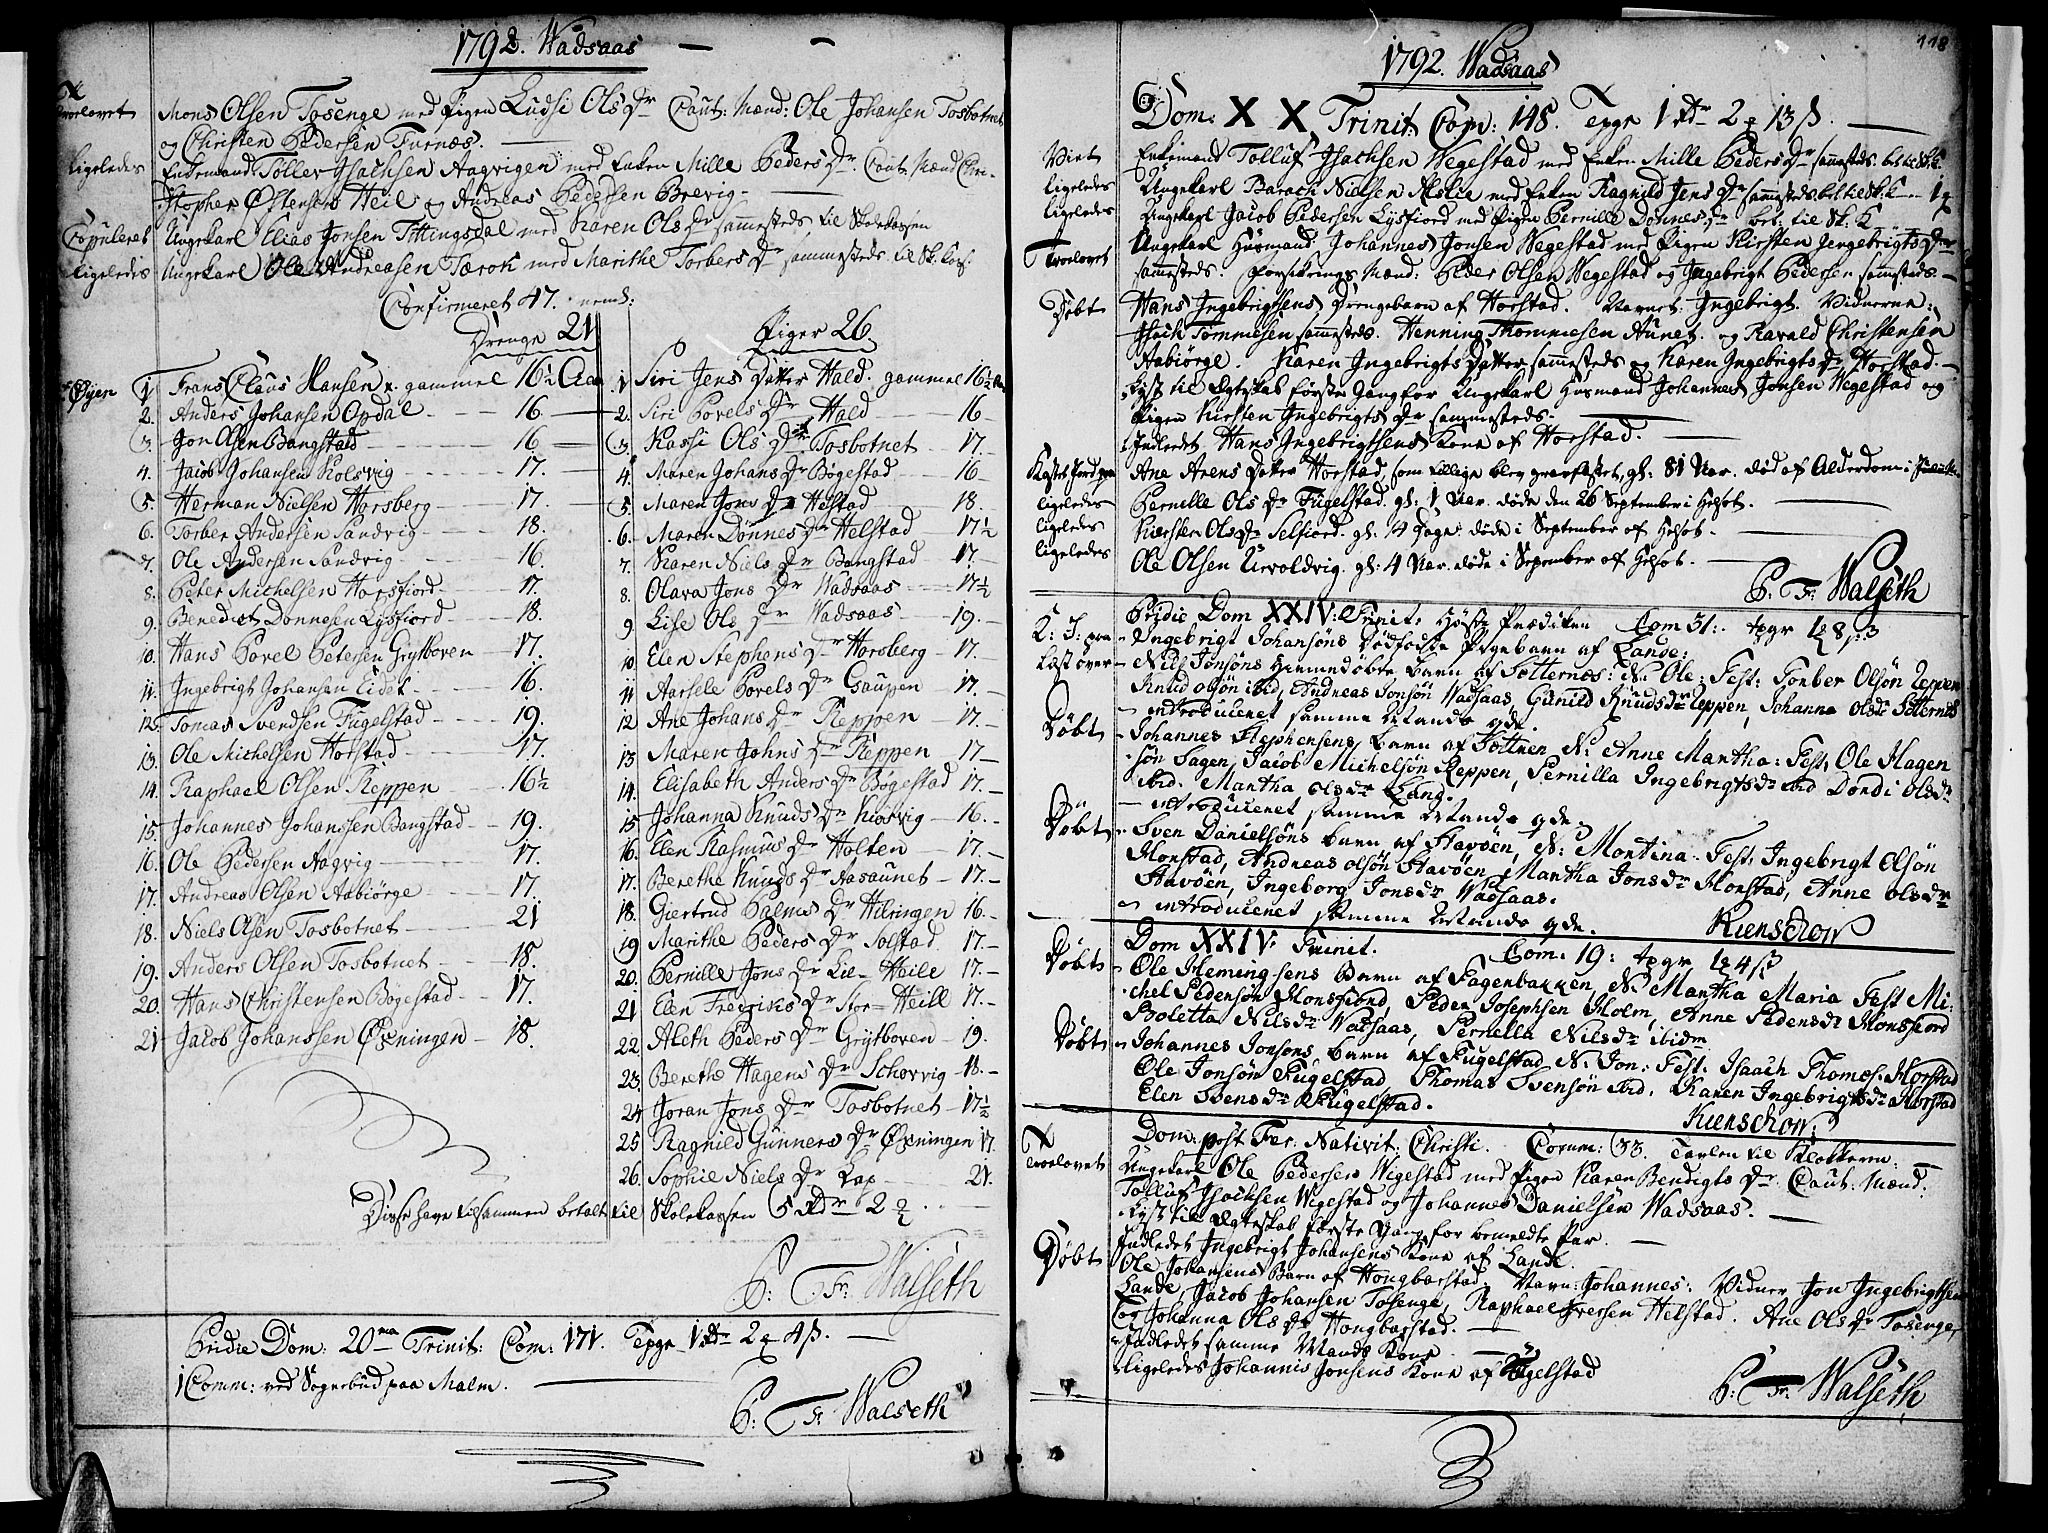 1792. Wadsaas
Troelovet Mons Olsen Tosenge med Pigen Ludsi Ols Dr Caut: Mænd: Ole Johansen Tosbotnet
og Christen Pedersen Furnæs.
ligeledes Enkemand: Toller Isachsen Aagvigen med Enken Mille Peders Dr Caut: Mænd Chri-
stopher Østensen Heil og Andreas Pedersen Brevig
Copuleret Ungekarl Elias Jonsen Tittingsdal med Karen Ols Dr sammesteds, til Skolekassen
ligeledis Ungekarl Ole Andreasen Tærok med Marithe Torbers Dr sammesteds til Sk. Kas.
Confirmeret 47. neml:
Drenge 21
Øyen 1 Frans Claus Hansen gammel 16½ Aar
2. Anders Johansen Opdal 16
3. Jon Olsen Bangstad 16
4. Jacob Johansen Kolsvig 17.
5. Herman Nielsen Horsberg 17
6. Torber Andersen Sandvig 18.
7. Ole Andersen Sandvig 16.
8. Peter Michelsen Horsfiord 17.
9. Benedict Donnesen Lysfiord 18.
10. Hans Povel Petersen Grytboven 17.
11. Ingebrigt Johansen Eidet 16.
12. Tomas Svendsen Fugelstad 19.
13. Ole Michelsen Horstad 17.
14. Raphael Olsen Reppen 16½
15 Johannes Johanssen Bangstad 19.
16. Ole Pedersen Aagvig 17.
17. Andreas Olsen Aabiørge 17.
18. Niels Olsen Tosbotnet 21
19. Anders Olsen Tosbotnet 18.
20. Hans Christensen Bøgestad 17.
21 Jacob Johanssen Øxningen 18.
Piger 26
1 Siri Jens Datter Hald. gammel 16½ Aar
2. Siri Povels Dr Hald 16
3. Kassi Ols Dr Tosbotnet 17.
4. Maren Johans Dr Bøgestad 16
5. Maren Jons Dr Helstad 18.
6. Maren Dønnes Dr Helstad 17½
7. Karen Niels Dr Bangstad 17.
8. Olava Jons Dr Wadsaas 17½
9 Lise Ols Dr Wadsaas 19.
10 Elen Stephens Dr Horsberg 17.
11 Aarsele Povels Dr Gaupen 17.
12 Ane Johans Dr Reppen 17.
13 Maren Johns Dr Reppen 17
14. Elisabeth Anders Dr Bøgestad 17.
15 Johanna Knuds Dr Kiørvig 16.
16. Elen Rasmus Dr Holten 17.
17. Berethe Knuds Dr Aasaunet 17.
18. Giertrud Palms Dr Hilringen 16.
19 Marithe Peders Dr Solstad. 17.
20. Pernille Jons Dr Lie-Heile 17.
21 Elen Fredriks Dr Stor-Heill 17.
22. Aleth Peders Dr Grytboven 19.
23. Berethe Hagens Dr Schorvig 18.
24 Joran Jons Dr Tosbotnet 17½
25 Ragnild Gunners Dr Øxningen 17.
26. Sophie Niels Dr Lap 21.
Disse have tilsammen betalt til Skolekassen 5 Rdr 2
P: Fr: Walseth
Pridie Dom: 20ma Trinit: Com: 171. Tepgr 1 Rdr 2 4 ß.
1 Comm: ved Sognebud paa Malm.
P: Fr: Walseth
118
1792. Wadsaas
Dom: XX Trinit: Com: 148. Tepgr 1 Rdr 2 13 ß.
Viet Enkemand Tolluf Isachsen Wegestad med Enken Mille Peders Dr sammesteds. bet. til Sk. K.
ligeledes Ungekarl Barach Nielsen Aslie med Enken Ragnild Jens Dr sammesteds. bet. til Sk. K.
ligeledes Ungekarl Jacob Pedersen Lysfiord med Pigen Pernille Donnes Dr bet: til Sk: K
Troelovet Ungekarl Husmand Johannes Jonsen Wegestad med Pigen Kirsten Jengebrigts Dr
sammesteds. Forsikrings Mænd: Peder Olsen Wegestad og Ingebrigt Pedersen sammesteds.
Døbt Hans Ingebrigtsens Drengebarn af Horstad. Navnet: Ingebrigt. Vidnerne:
Isach Tommesen sammesteds. Henning Thommesen Aunet. og Harald Christensen
Aabiørge. Karen Ingebrigts Datter sammesteds og Karen Ingebrigts Dr Horstad.
Lyst til Ægteskab første Gang for Ungekarl Husmand Johannes Jonsen Wegestad og
Pigen Kirsten Ingebrigts Dr sammesteds.
Indledet Hans Ingebrigtsens Kone af Horstad.
Kastet Jord paa Ane Arens Datter Horstad, som tillige blev gravfæstet, gl: 81 Aar. død af Alderdom i
ligeledes Pernille Ols Dr Fugelstad. gl: 1 Aar. døde den 26 September i
ligeledes Kiersten Ols Dr Selfiord. gl: 4 Dage døde i September af
ligeledes Ole Olsen Urvoldvig. gl: 4 Aar. døde i Sepember af
P. Fr: Walseth
Pridie Dom XXIV: Trinit: Høsts Prædiken Com 31: tpgr 1 8 ß 3
K: J: paa Ingebrigt Johansøns dødfødte Pigebarn af Lande:
Læst over Nills Jonsøns hiemmedøbte Barn af Sotternes: N: Ole: Test: Torber Olsøn Reppen
Knud olsøn ibid, Andreas Jonsøn Wadsaas, Gunild Knudsdr Reppen, Johanna olsdr Sotternes
introduceret samme Mands qde
Døbt Johannes Stephensens barn af Sottnen, N: Anne Martha: Test: Ole Hagen
søn Hagen, Jacob Michelsøn Reppen, Pernilla Ingebrigtsdr ibid Dordi olsdr
ibid. Martha olsdr Lang.
introduceret samme Mands qde.
Døbt Sven Danielsøns barn af Havøen, N: Martina. Test: Ingebrigt Olsøn
Horstad, Andreas olsøn Havøen, Martha Jonsdr Horstad, Anne olsdr
Havøen, Ingeborg Jonsdr Wadsaas.
introduceret samme Mands qde. Kienschow
Dom XXIV: Trinit. Com: 19: tpgr 1 4 ß
Døbt Ole Hemingsens Barn af Fagerbakken, N: Martha Maria Test Mi:
chel Pedersøn Horsfiord, Peder Josephsen Holm, Anne Pedersdr Horsfiord
Boletta Nilsdr Wadsaas, Pernella Nilsdr ibidm
Døbt Johannes Jonsons barn af Fugelstad, N: Jon: Test: Isaach Thomes: Horstad
Ole Jonsøn Fugelstad, Thomas Svensøn ibid, Karen Ingebrigtsdr Horstad
Elen Svensdr Fugelstad.
Kienschow:
Dom: post Fer: Nativit: Christi. Comm: 33. Tavlen til Klokkeren:
Troelovet Ungekarl Ole Pedersen Wigestad med Pigen Karen Bendigts Dr Caut: Mænd:
Tolluf Isachsen Wigestad og Johannes Danielsen Wadsaas.
Lyst til Ægteskab første Gang for bemeldte Par.
Indledet Ingebrigt Johansens Kone af Lande.
Døbt Ole Johansens Barn af Hongbarstad. Navn: Johannes: Vidner Jon Ingebrigtsen
Lande, Jacob Johansen Tosenge, Raphael Iversen Helstad. Ane Ols Dr Tosenge,
og Johanna Ols Dr Hongbarstad.
Indledet samme Mands Kone.
ligeledes Johannis Jonsens Kone af Fugelstad
P: Fr: Walseth